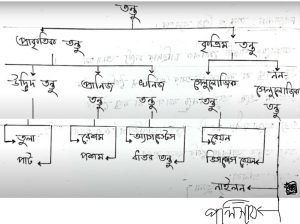 তন্তু
প্রাকৃতিক তন্তু
কৃত্রিম তন্তু
উদ্ভিদ তন্তু
প্রাণিজ তন্তু
খনিজ তন্তু
সেলুলোজিক তন্তু
নন-সেলুলোজিক তন্তু
তুলা
পাট
রেশম
পশম
অ্যাসবেস্টস
ধাতব তন্তু
রেয়ন
নাইলন